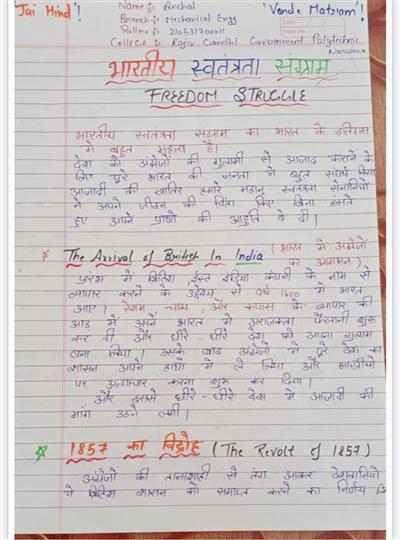 Jai Hind'!
Name:- Anchal
'Vande Matram'!
Branch:- Mechanical Engg
Roll no:- 210531700011
College:- Rajiv Gandhi Government Polytechnic
भारतीय स्वतंत्रता संग्राम
FREEDOM STRUGGLE
भारतीय स्वतंत्रता संग्राम का भारत के इतिहास
में बहुत महत्व है।
देश को अंग्रेजों की गुलामी से आजाद कराने के
लिए पूरे भारत की जनता ने बहुत संघर्ष किया
आजादी की खातिर हमारे महान् स्वतंत्रता सेनानियों
ने अपने जीवन की चिंता किए बिना हंसते
हुए अपने प्राणों की आहुति दे दी।
The Arrival of British In India (भारत में अंग्रेजों
का आगमन)
प्रारंभ में ब्रिटिश ईस्ट इंडिया कंपनी के नाम से
व्यापार करने के उद्देश्य से वर्ष 1600 में भारत
आए। रेशम, चाय, और कपास के व्यापार की
आड़ में उसने भारत में अराजकता फैलानी शुरू
कर दी और धीरे-धीरे देश को अपना गुलाम
बना लिया। उसके बाद अंग्रेजों ने पूरे देश का
शासन अपने हाथों में ले लिया और भारतीयों
पर अत्याचार करना शुरू कर दिया।
और इससे धीरे-धीरे देश में आजादी की
मांग उठने लगी।
1857 का विद्रोह (The Revolt of 1857)
अंग्रेजों की तानाशाही से तंग आकर देशवासियों
ने ब्रिटिश शासन को समाप्त करने का निर्णय